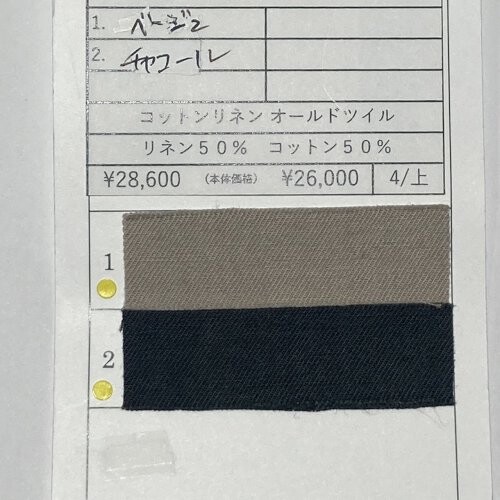 1. ベージュ
2. チャコール
コットンリネン オールドツイル
リネン50% コットン50%
¥28,600 (本体価格) ¥26,000 4/上
1
2